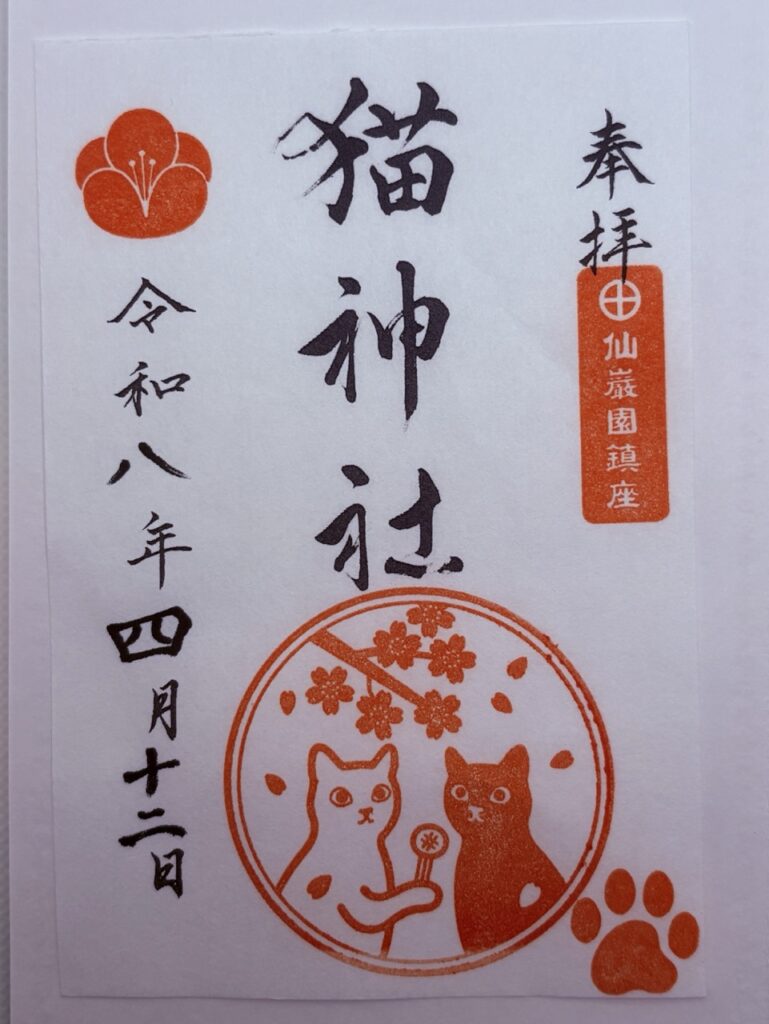 奉拝
仙巌園鎮座
猫神社
令和八年四月十二日